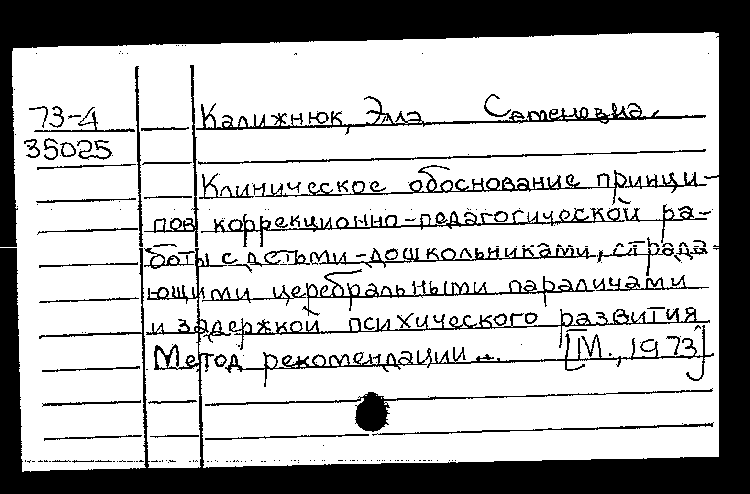 73-4
35025
Калижнюк, Элла
Клиническое обоснование принци-
пов коррекционно-педагогической ра-
боты с детьми-дошкольниками, страда-
ющими церебральными параличами
и задержкой психического развития
Метод рекомендации... [М., 1973]